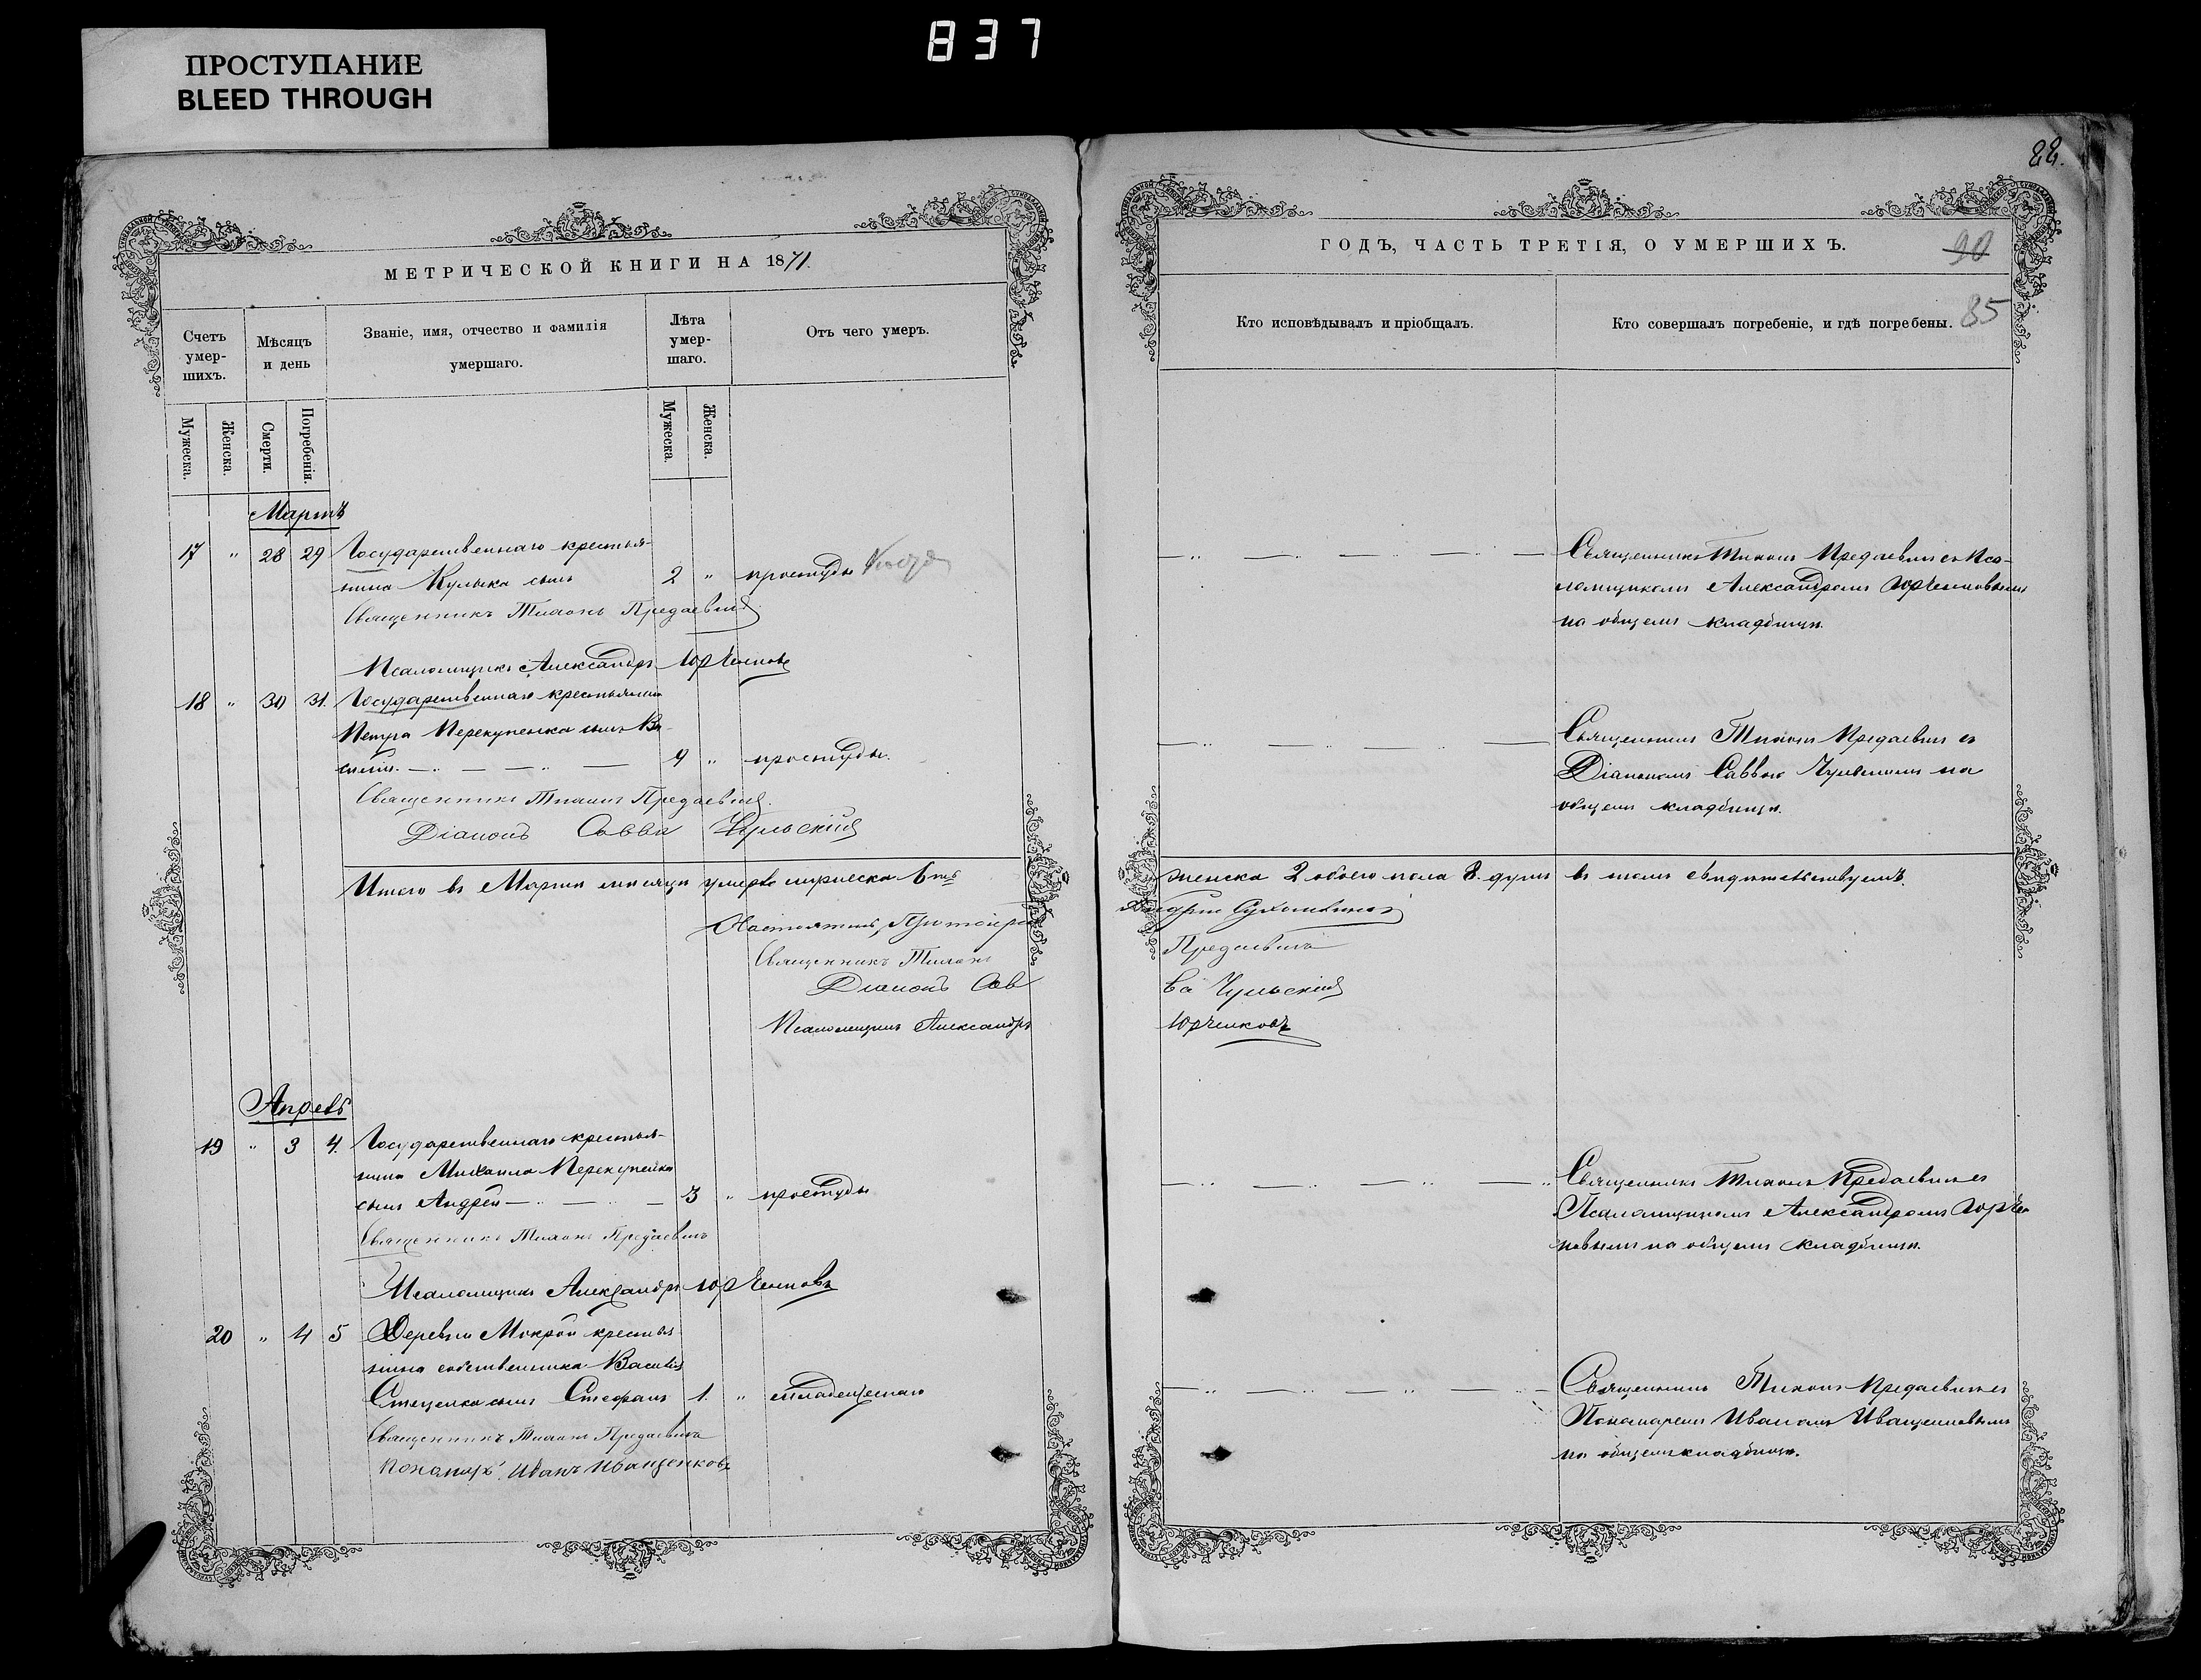 837
ПРОСТУПАНИЕ
BLEED THROUGH
22.
МЕТРИЧЕСКОЙ КНИГИ НА 1871.
Счетъ умер-шихъ.
Мѣсяцъ и день
Званіе, имя, отчество и фамилія умершаго.
Лѣта умер-шаго.
Отъ чего умеръ.
Мужеска.
Женска.
Смерти.
Погребенія.
Мужеска.
Женска.
ГОДЪ, ЧАСТЬ ТРЕТІЯ, О УМЕРШИХЪ.
90
Кто исповѣдывалъ и пріобщалъ.
Кто совершалъ погребеніе, и гдѣ погребены.
85
Мартъ
17 " 28 29 Государственнаго крестья-
нина Кулыка сынъ 2 " простуды
Священникъ Тихонъ Предаевичъ
Псаломщикъ Александръ Юрченковъ
Священникъ Тихонъ Предаевичъ съ Пса-
ломщикомъ Александромъ Юрченковымъ
на общемъ кладбищѣ.
18 " 30 31. Государственнаго крестьянина
Петра Перекупенка сынъ Ва-
силій. 4 " простуды.
Священникъ Тихонъ Предаевичъ.
Діаконъ Савва Чульскій
Священникъ Тихонъ Предаевичъ съ
Діакономъ Саввою Чульскимъ на
общемъ кладбищѣ.
Итого въ Мартѣ мѣсяцѣ умерло мужеска 6ть женска 2 обоего пола 8. душъ въ томъ свидѣтельствуемъ.
Священникъ Тихонъ Предаевичъ
Діаконъ Савва Чульскій
Псаломщикъ Александръ Юрченковъ
Апрель
19 " 3 4. Государственнаго крестья-
нина Михаила Перекупенка
сынъ Андрей 3 " простуды
Священникъ Тихонъ Предаевичъ
Псаломщикъ Александръ Юрченковъ
Священникъ Тихонъ Предаевичъ съ
Псаломщикомъ Александромъ Юрчен
ковымъ на общемъ кладбищѣ.
20 " 4 5 Деревни Мокрой крестья
нина собственника Василія
Стеценка сынъ Стефанъ 1. " младенческаго
Священникъ Тихонъ Предаевичъ
Пономарь Иванъ Иващенковъ
Священникъ Тихонъ Предаевичъ съ
Пономаремъ Иваномъ Иващенковымъ
на общемъ кладбищѣ.